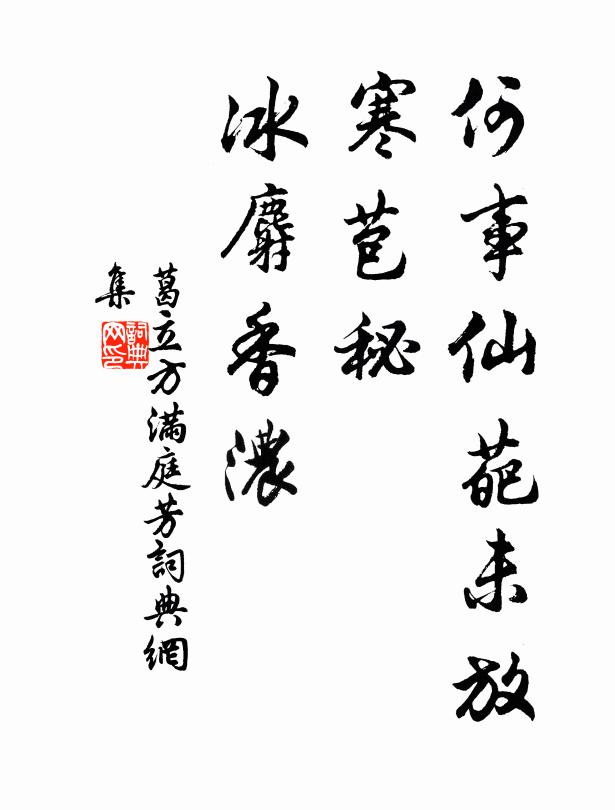 何事仙葩未放
寒苞秘
冰麝香濃
葛立方滿庭芳詞典網
集
詞典网印